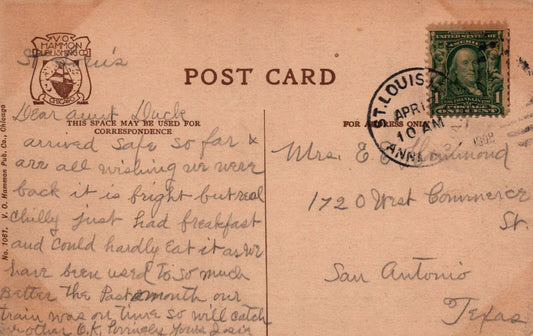 V.O.
HAMMON
PUBLISHING CO.
CHICAGO
St Louis
POST CARD
THIS SPACE MAY BE USED FOR
CORRESPONDENCE
FOR ADDRESS ONLY
No. 1061, V. O. Hammon Pub. Co., Chicago
UNITED STATES OF
AMERICA
FRANKLIN
1 1
ST. LOUIS
APR
10 AM
1908
ANN
Dear aunt Duck
arrived safe so far &
are all wishing we were
back it is bright but real
chilly just had breakfast
and could hardly eat it as we
have been used to so much
Better the Past month our
train was on time so will catch
another O.K. Yours
Mrs. E. E. Hammond
1720 West Commerce
St.
San Antonio
Texas